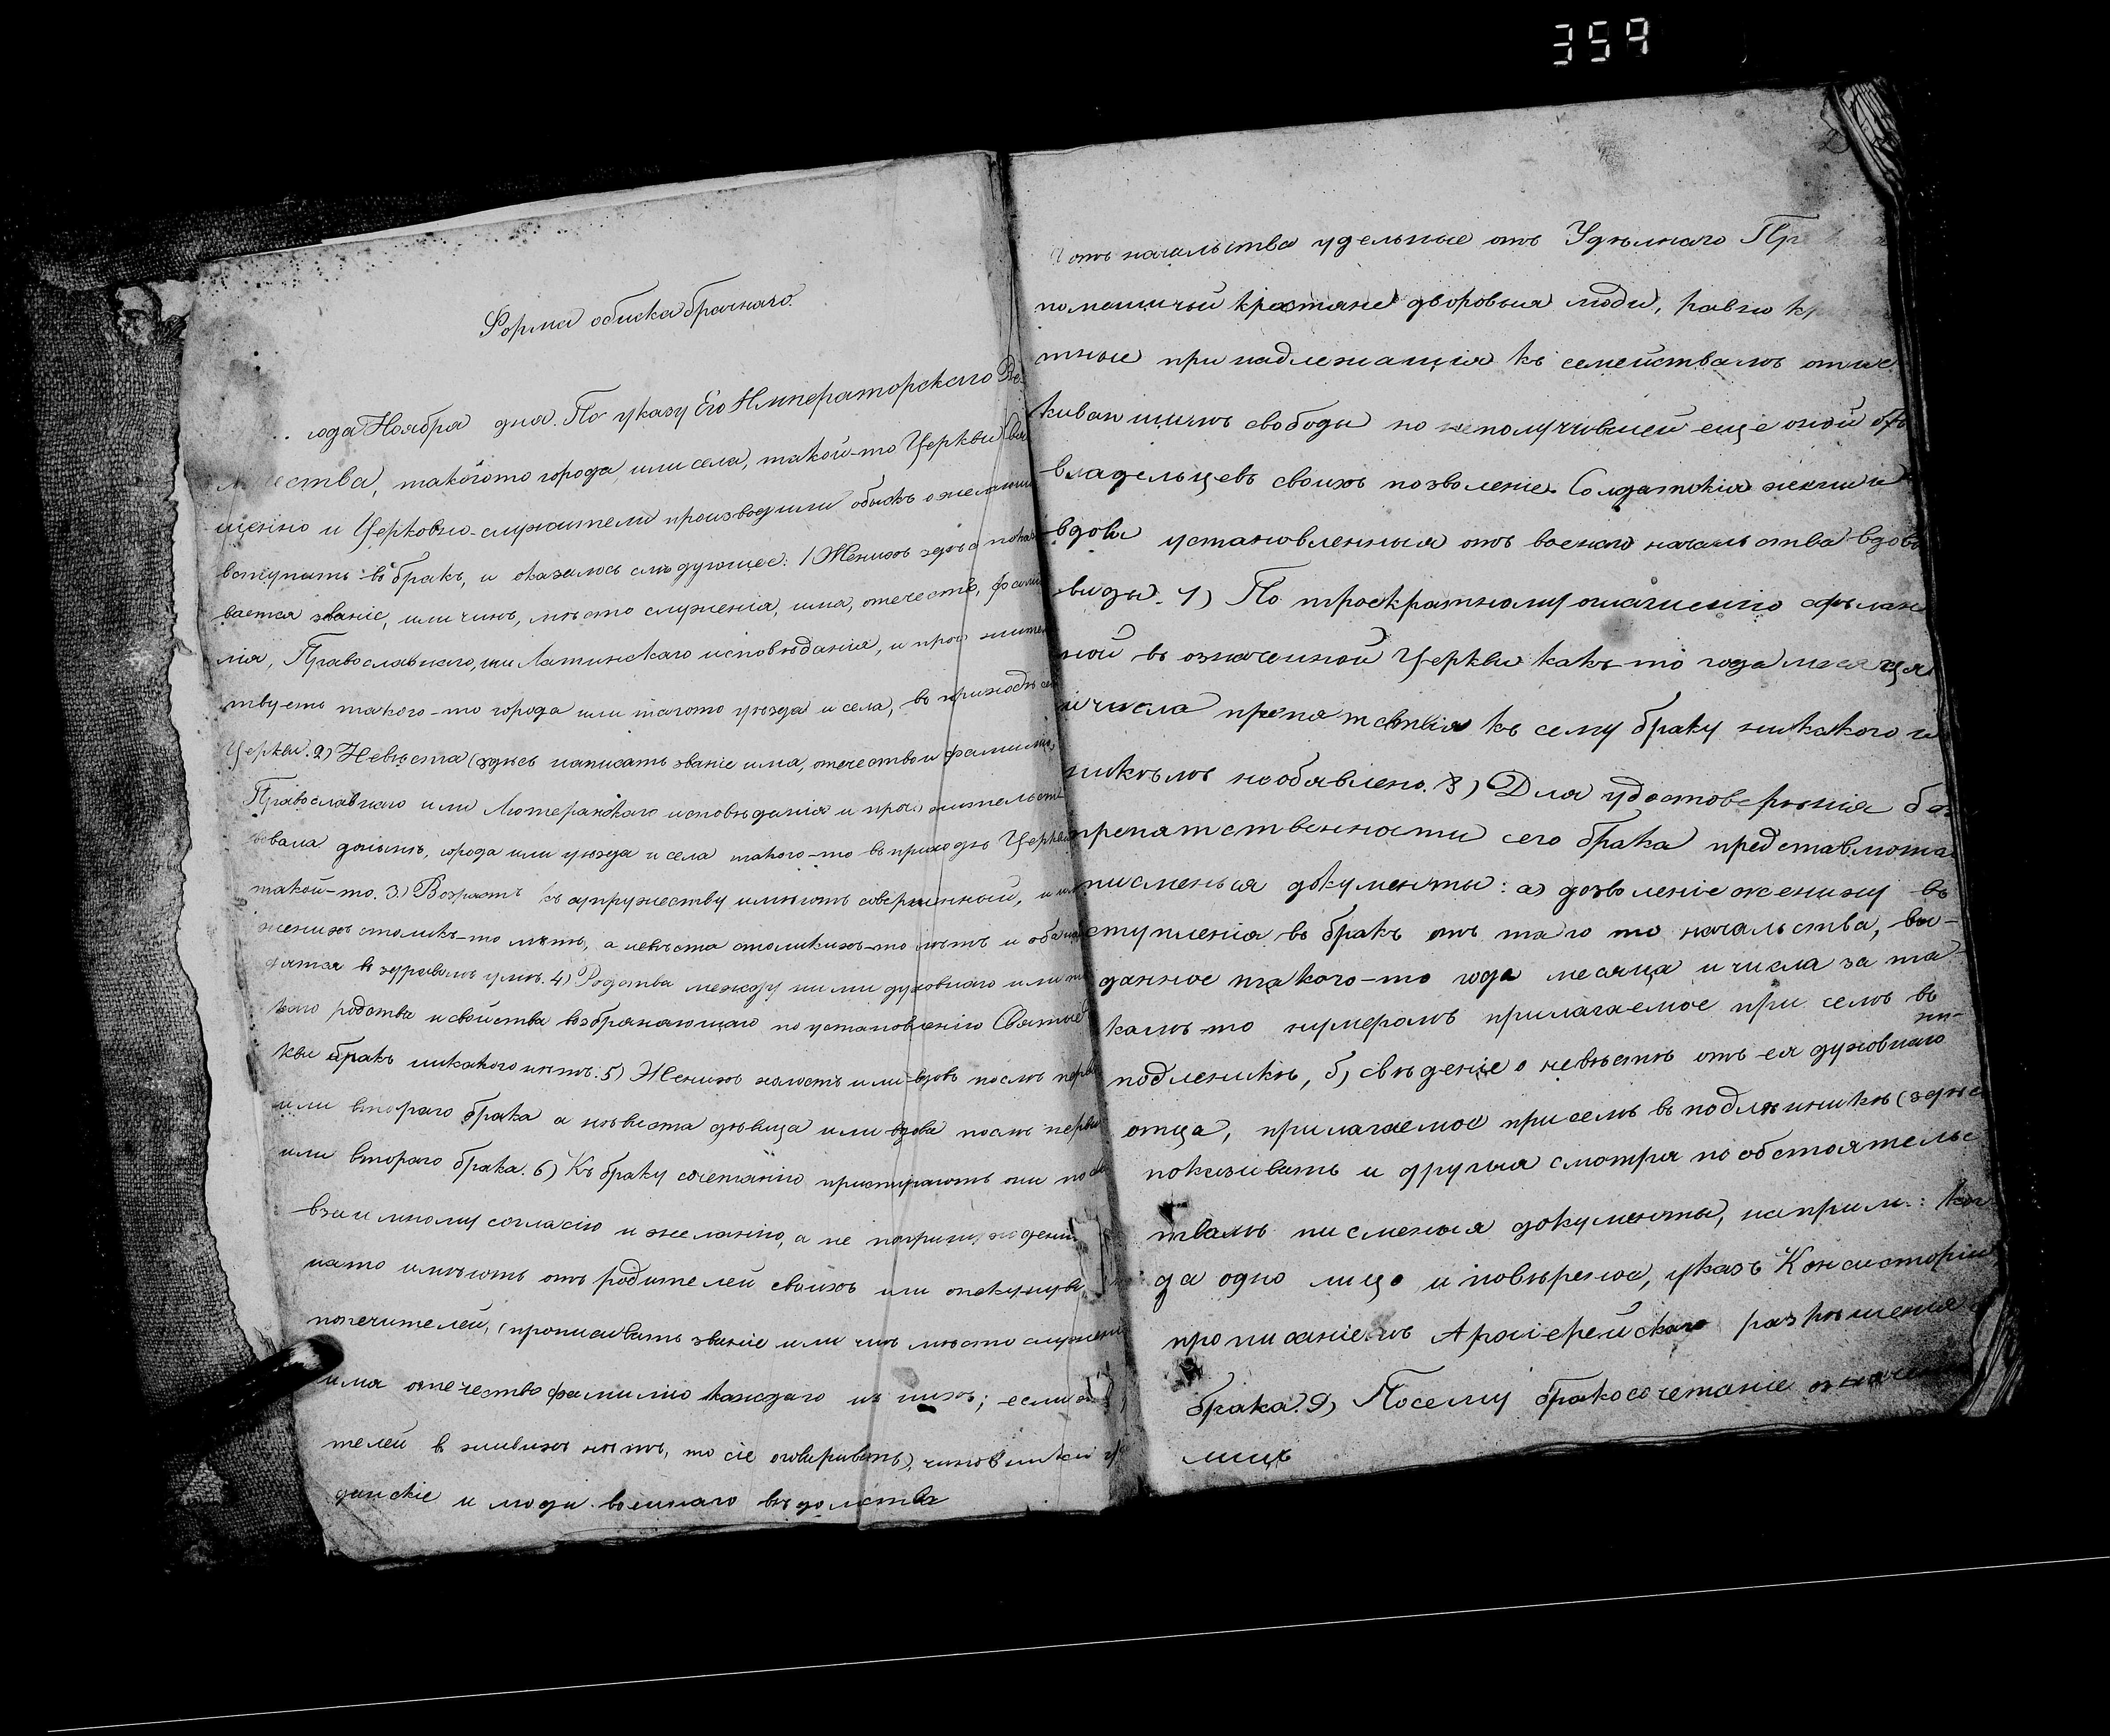 359
Форма обиска брачнаго.
года Ноября дня. По указу Его Императорскаго Ве-
чества, такогото города, или села, такой-то Церкви
щенно и Церковно-служители производили обыскъ о желающи
вступить въ бракъ, и оказалось слѣдующее: 1 Женихъ здѣсь показ
вается званіе, или чинъ, мѣсто служенія, имя, отечество, фами
лія, Православнаго, или Латинскаго исповѣданія, и прож жител
твуетъ такого-то города или такого уѣзда и села, въ приходѣ сей
Церкви. 2) Невѣста (здѣсь написать званіе имя, отечество и фамилію,
Православнаго или Лютеранскаго исповѣданія и прож жительст
вовала донынѣ, города или уѣзда и села такого-то въ приходѣ Церкви
такой-то. 3) Возрастъ къ супружеству имѣютъ совершенный, и
женихъ столикъ-то лѣтъ, а невѣста столикихъ-то лѣтъ и оба нахо
дятся въ здравомъ умѣ. 4) Родства между ними духовнаго или пло
каго родства и свойства возбраняющаго по установленію Святыя
кви бракъ никакого нѣтъ. 5) Женихъ холостъ или вдовъ послѣ перва
или втораго брака а нѣвиста дѣвица или вдова послѣ перва
или втораго брака. 6) Къ браку сочетанію приступаютъ они по сво
взаимному согласію и желанію, а не попринужденію
нато имѣютъ отъ родителей своихъ или опекуновъ,
попечителей, (прописивать званіе или чинъ мѣсто служени
имя отечество фамилію каждаго из нихъ; если
телей в живихъ нѣтъ, то сіе оговаривать), чиновники гр
данскіе и люди военнаго вѣдомства
отъ начальства удельные отъ Удѣлнаго Пр
помещичьи крестяне дворовыя люди, равно к
тные принадлежащія къ семействамъ отыс
кивающимъ свободы но неполучившей еще оной отъ
владельцевъ своихъ позволеніе. Солдатскія жени и
вдовы установленныя отъ военаго начальства вдов
виды. 7) По троекратному оглашенію здѣлан
ной въ означенной Церкви какъ-то года месяця
и числа препятсвтия къ сему браку никакого и
никѣмъ необявлено. 8) Для удостоверѣнія без
препятственности сего брака представлюта
писменыя документы: а) дозволеніе жениху въ
ступленія въ бракъ отъ таго то начальства, ви-
данное такого-то года месяца и числа за та-
камъ-то нумеромъ прилагаемое при семъ въ
подленикѣ, б) свѣденіе о невѣстѣ отъ ея духовнаго
отца, прилагаемое при семъ въ подлинникѣ (здѣс
показивать и другия смотря по обстоятельс
твамъ писменыя документы, наприм.: ког
да одно лице иновѣрное, указъ Консисторіи
прописаніемъ Архіерейскаго разрѣшенія
брака. 9) Посему бракосочетаніе означен
лицъ